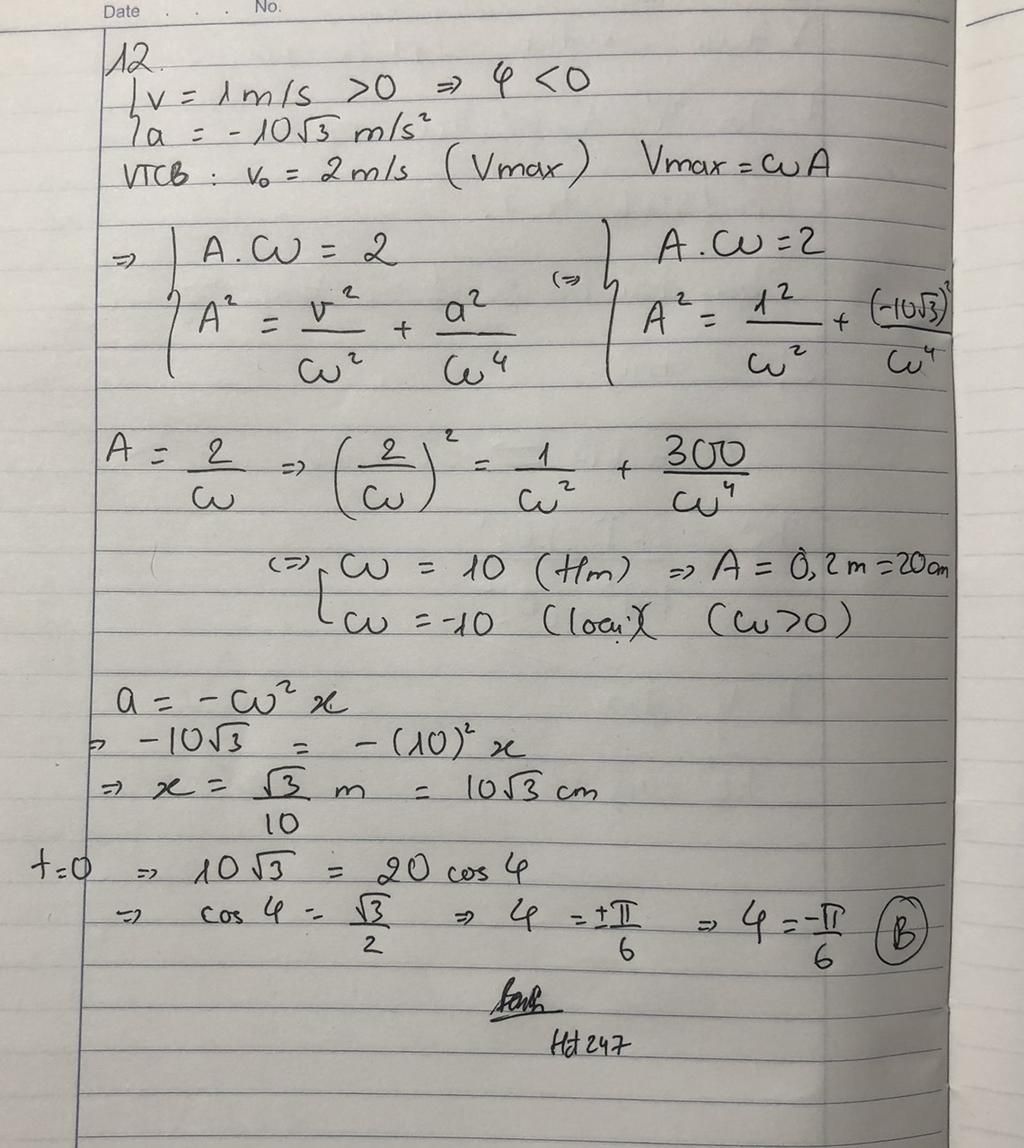 Date . . . No.
12.
{ v = 1m/s > 0 => φ < 0
{ a = - 10√3 m/s²
VTCB : v₀ = 2m/s (Vmax) Vmax = ωA
=> { A.ω = 2 (=> { A.ω = 2
{ A² = v²/ω² + a²/ω⁴ { A² = 1²/ω² + (-10√3)²/ω⁴
A = 2/ω => (2/ω)² = 1/ω² + 300/ω⁴
(=> [ ω = 10 (tm) => A = 0,2m = 20cm
[ ω = -10 (loại) (ω>0)
a = - ω² x
=> -10√3 = -(10)² x
=> x = √3/10 m = 10√3 cm
t=0 => 10√3 = 20 cos φ
=> cos φ = √3/2 => φ = ±π/6 => φ = -π/6 (B)
Hdt247